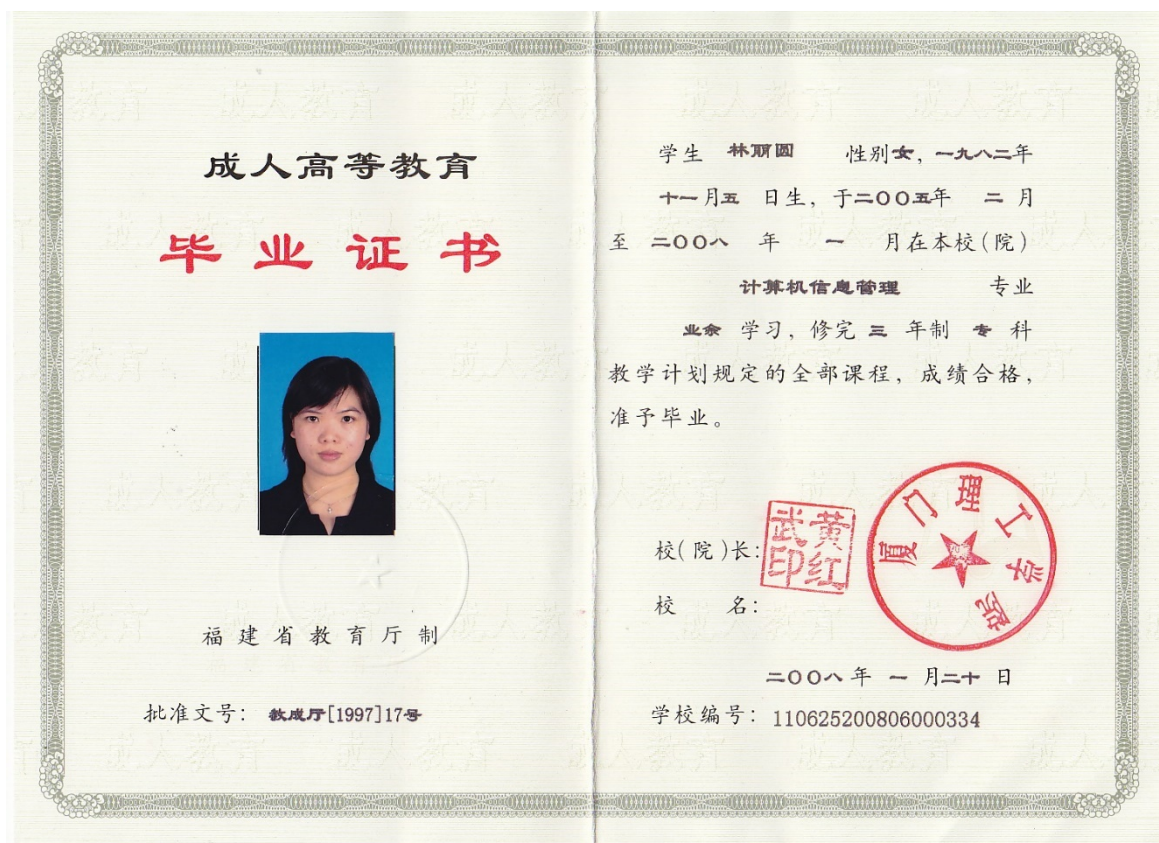 成人高等教育
毕业证书
福建省教育厅制
批准文号：教成厅[1997]17号
学生 林丽圆 性别女，一九八二年
十一月五 日生，于二〇〇五年 二 月
至 二〇〇八 年 一 月在本校(院)
计算机信息管理 专业
业余 学习，修完 三 年制 专 科
教学计划规定的全部课程，成绩合格，
准予毕业。
校(院)长：
黄红武印
校 名：
厦门理工学院
二〇〇八年 一 月二十 日
学校编号：110625200806000334
成人教育